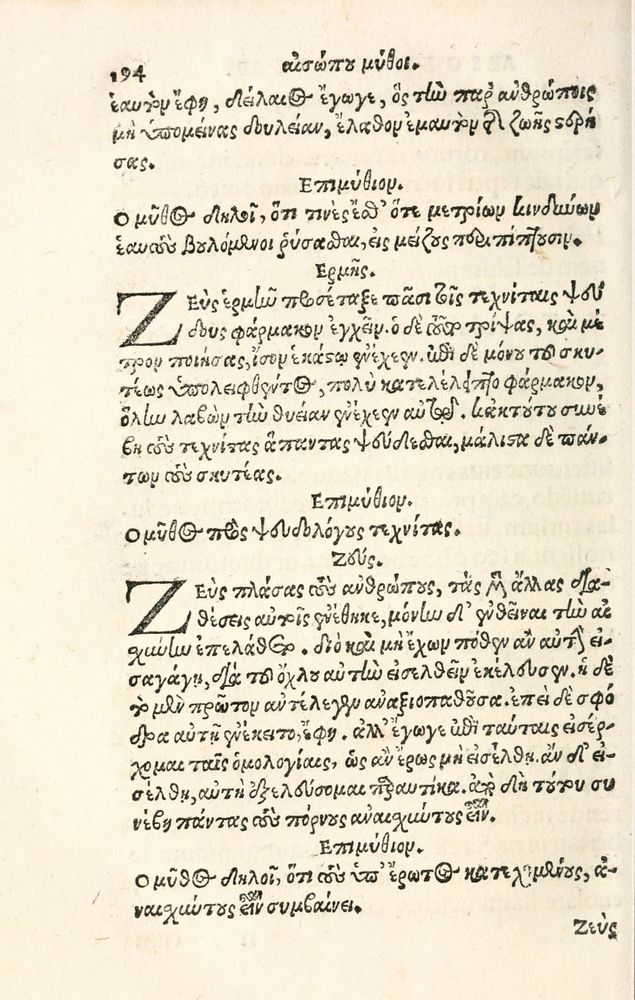 194 αισώπου μύθοι.
ἑαυτὸν ἔφη, δείλαιος ἔγωγε, ὃς τὴν παρ' ἀνθρώποις
μὴ ὑπομείνας δουλείαν, ἔλαθον ἐμαυτὸν τ ζωῆς στερή
σας.
Επιμύθιον.
Ο μῦθος δηλοῖ, ὅτι τινὲς ἔσθ' ὅτε μετρίων κινδύνων
ἑαυτοὺς βουλόμενοι ῥύσασθαι, εἰς μείζους περιπίπτουσιν.
Ερμῆς.
ΖΕὺς ἑρμῇ προσέταξε πᾶσι τοῖς τεχνίταις ψεύ
δους φάρμακον ἐγχεῖν. ὁ δὲ τοῦτο τρίψας, καὶ μέ
τρον ποιήσας, ἴσον ἑκάστῳ ἐνέχεεν. ἐπεὶ δὲ μόνου τοῦ σκυ-
τέως ὑπολειφθέντος, πολὺ κατελέλειπτο φάρμακον,
ὅλην λαβὼν τὴν θυείαν ἐνέχεεν αὐτῷ. κἀκ τούτου συνέ
βη τοὺς τεχνίτας ἅπαντας ψεύδεσθαι, μάλιστα δὲ πάν-
των τοὺς σκυτέας.
Επιμύθιον.
Ο μῦθος πρὸς ψευδολόγους τεχνίτας.
Ζεύς.
ΖΕὺς πλάσας τοὺς ἀνθρώπους, τὰς μὲν ἄλλας δια-
θέσεις αὐτοῖς ἐνέθηκε, μόνην δ' ἐνθεῖναι τὴν αἰ
σχύνην ἐπελάθετο. διὸ καὶ μὴ ἔχων πόθεν ἂν αὐτὴν εἰ-
σαγάγῃ, διὰ τοῦ ὄχλου αὐτὴν εἰσελθεῖν ἐκέλευσεν. ἡ δὲ
τὸ μὲν πρῶτον ἀντέλεγεν ἀναξιοπαθοῦσα. ἐπεὶ δὲ σφό
δρα αὐτῇ ἐνέκειτο, ἔφη. ἀλλ' ἔγωγε ἐπὶ ταύταις εἰσέρ-
χομαι ταῖς ὁμολογίαις, ὡς ἂν ἔρως μὴ εἰσέλθῃ. ἂν δ' εἰ-
σέλθῃ, αὐτὴ ἐξελεύσομαι παραυτίκα. ἀπὸ δὴ τούτου συ
νέβη πάντας τοὺς πόρνους ἀναισχύντους εἶναι.
Επιμύθιον.
Ο μῦθος δηλοῖ, ὅτι τοὺς ὑπ' ἔρωτος κατεχομένους, ἀ-
ναισχύντους εἶναι συμβαίνει.
Ζεὺς